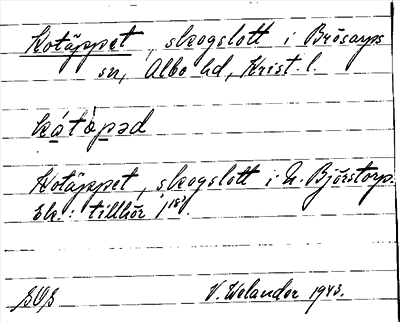 Kotäppet, skogslott i Brösarps
sn, Albo hd, Krist. l.
kátäpəd
Kotäppet, skogslott i N. Björstorp.
Ek.: tillhör 1¹⁸³.
V. Welander 1943.